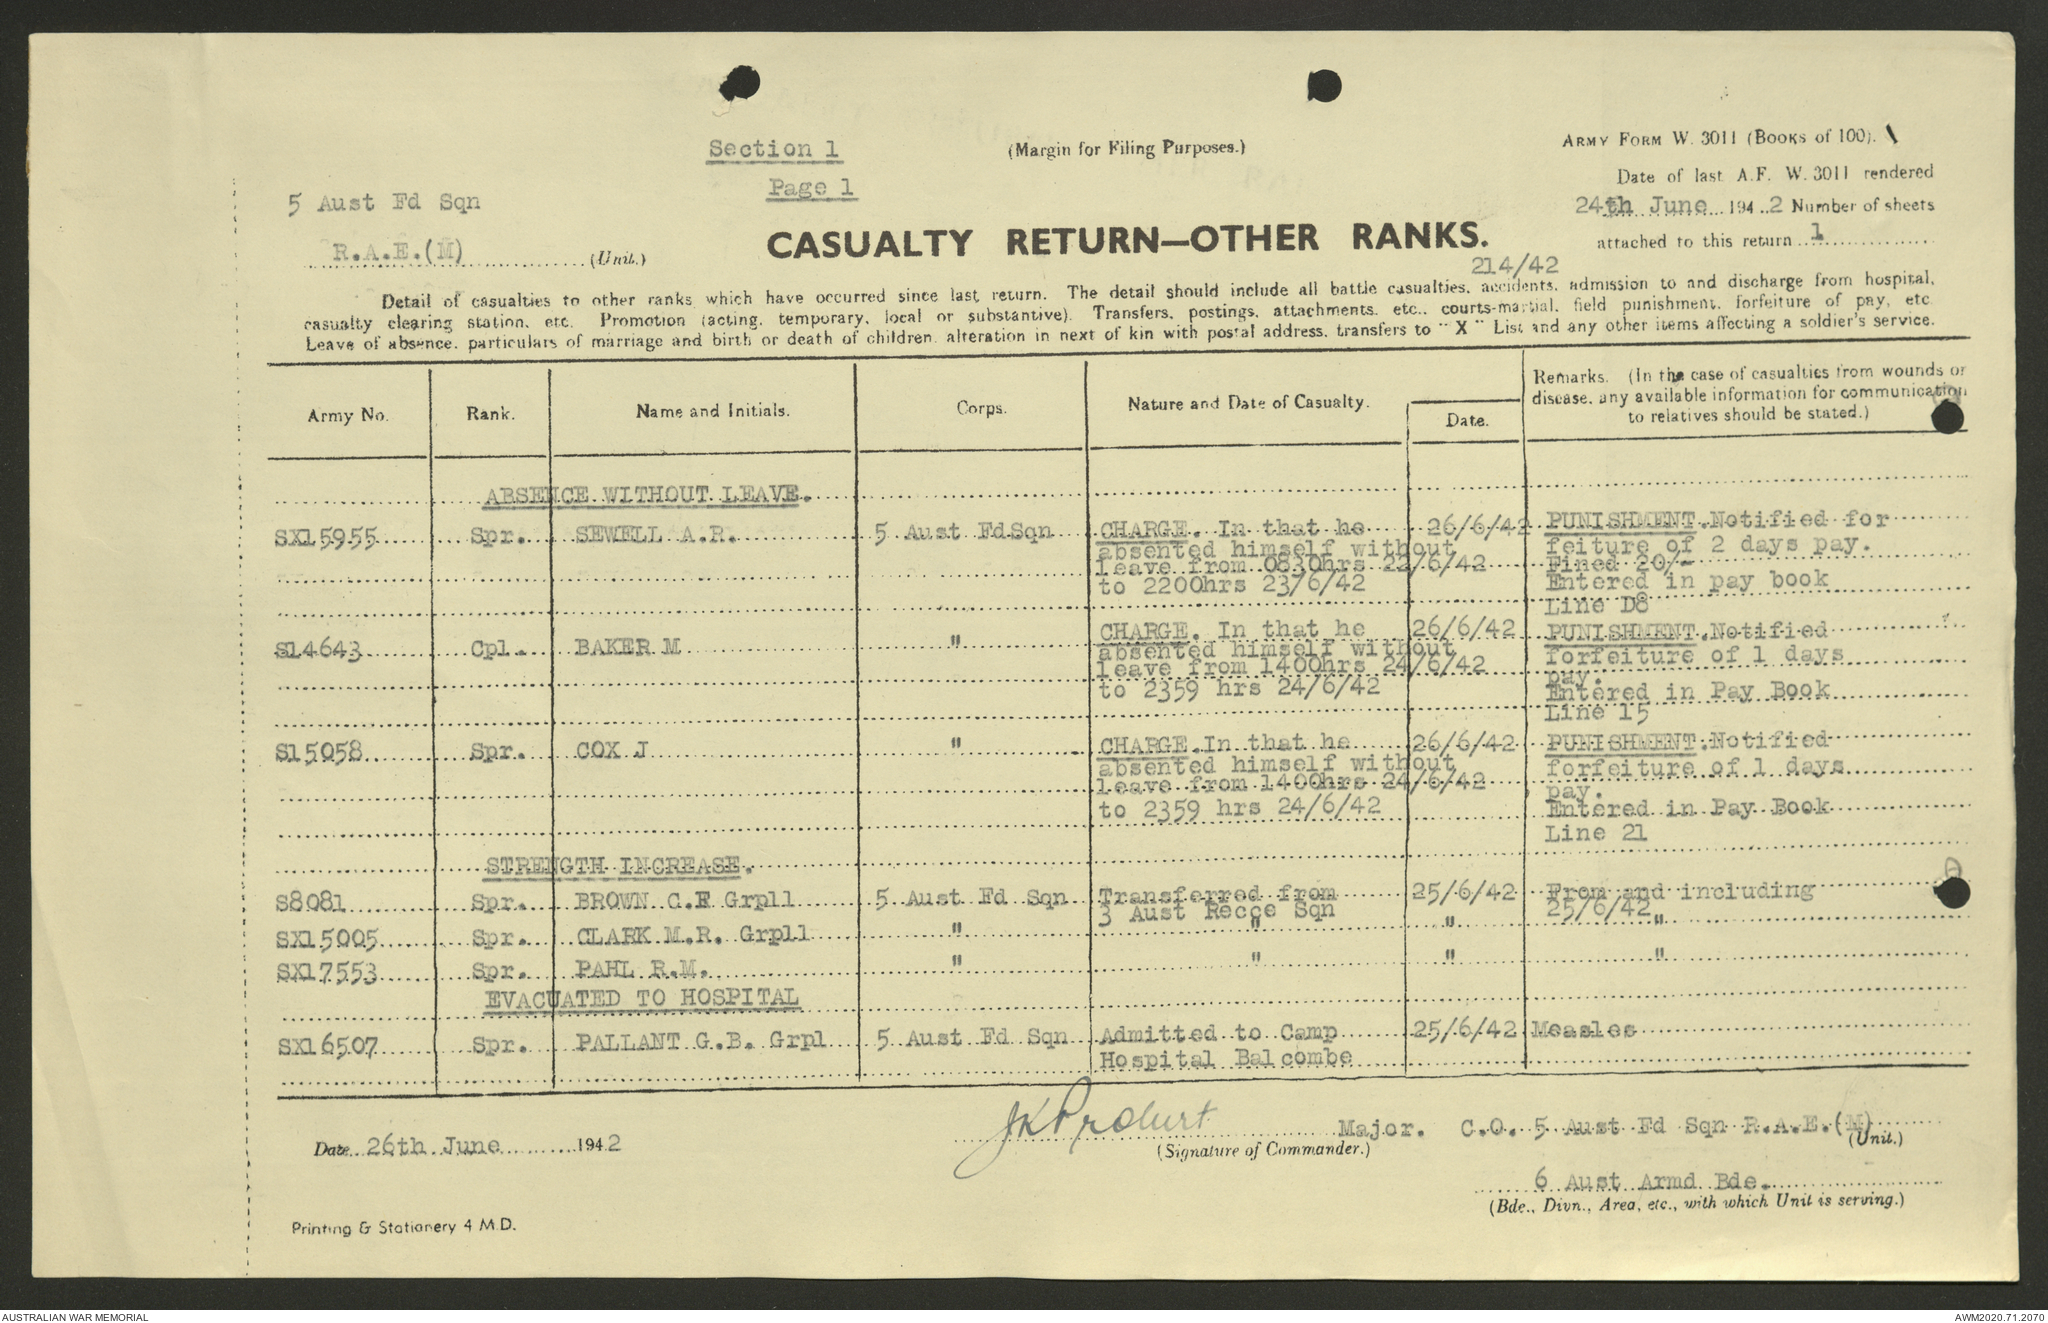 Section 1
(Margin for Filing Purposes.)
ARMY FORM W. 3011 (BOOKS OF 100).
Page 1
Date of last A.F. W. 3011 rendered
5 Aust Fd Sqn
24th June 1942 Number of sheets
R.A.E.(M) (Unit.)
CASUALTY RETURN—OTHER RANKS.
attached to this return 1
214/42
Detail of casualties to other ranks which have occurred since last return. The detail should include all battle casualties, accidents, admission to and discharge from hospital,
casualty clearing station, etc. Promotion (acting, temporary, local or substantive). Transfers, postings, attachments, etc., courts-martial, field punishment, forfeiture of pay, etc.
Leave of absence, particulars of marriage and birth or death of children, alteration in next of kin with postal address, transfers to "X" List and any other items affecting a soldier's service.
Army No. Rank. Name and Initials. Corps. Nature and Date of Casualty. Date. Remarks. (In the case of casualties from wounds or
disease, any available information for communication
to relatives should be stated.)
ABSENCE WITHOUT LEAVE.
SX15955 Spr. SEWELL A.R. 5 Aust FdSqn CHARGE. In that he 26/6/42 PUNISHMENT.Notified for
absented himself without feiture of 2 days pay.
leave from 0830hrs 22/6/42 Fined 20/-
to 2200hrs 23/6/42 Entered in pay book
Line D8
S14643 Cpl. BAKER M " CHARGE. In that he 26/6/42 PUNISHMENT.Notified
absented himself without forfeiture of 1 days
leave from 1400hrs 24/6/42 pay.
to 2359 hrs 24/6/42 Entered in Pay Book
Line 15
S15058 Spr. COX J " CHARGE.In that he 26/6/42 PUNISHMENT.Notified
absented himself without forfeiture of 1 days
leave from 1400hrs 24/6/42 pay.
to 2359 hrs 24/6/42 Entered in Pay Book
Line 21
STRENGTH INCREASE.
S8081 Spr. BROWN C.E Grpll 5 Aust Fd Sqn Transferred from 25/6/42 From and including
3 Aust Recce Sqn 25/6/42
SX15005 Spr. CLARK M.R. Grpll " " " "
SX17553 Spr. PAHL R.M. " " " "
EVACUATED TO HOSPITAL
SX16507 Spr. PALLANT G.B. Grpl 5 Aust Fd Sqn Admitted to Camp 25/6/42 Measles
Hospital Balcombe
Date 26th June 1942
JK Probert Major. C.O. 5 Aust Fd Sqn R.A.E.(M)
(Signature of Commander.) (Unit.)
6 Aust Armd Bde.
(Bde., Divn., Area, etc., with which Unit is serving.)
Printing & Stationery 4 M.D.
AUSTRALIAN WAR MEMORIAL
AWM2020.71.2070